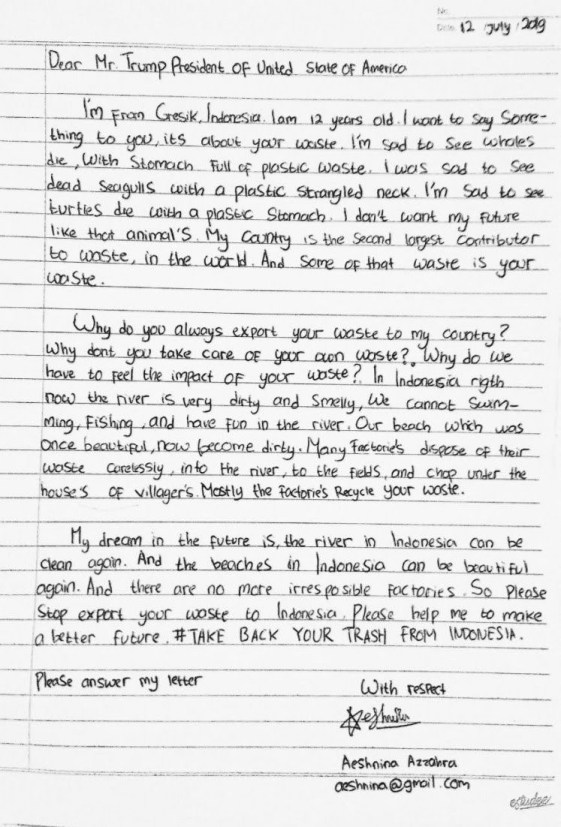 No:
Date: 12 July, 2019
Dear Mr. Trump President of United State of America
I'm From Gresik, Indonesia. I am 12 years old. I want to say Some-
thing to you, its about your waste. I'm sad to see whales
die, with stomach full of plastic waste. I was sad to see
dead seagulls with a plastic strangled neck. I'm sad to see
turtles die with a plastic stomach. I don't want my future
like that animal's. My country is the second largest contributor
to waste, in the world. And some of that waste is your
waste.
Why do you always export your waste to my country?
Why dont you take care of your own waste?. Why do we
have to feel the impact of your waste?. In Indonesia rigth
now the river is very dirty and smelly, We cannot Swim-
ming, Fishing, and have fun in the river. Our beach which was
once beautiful, now become dirty. Many factorie's dispose of their
waste carelessly, into the river, to the fields, and chop under the
house's of villager's. Mostly the factorie's Recycle your waste.
My dream in the future is, the river in Indonesia can be
clean again. And the beaches in Indonesia can be beautiful
again. And there are no more irresposible factories. So Please
Stop export your waste to Indonesia. Please help me to make
a better future. #TAKE BACK YOUR TRASH FROM INDONESIA.
Please answer my letter
With respect
Aeshnina Azzahra
aeshnina@gmail.com